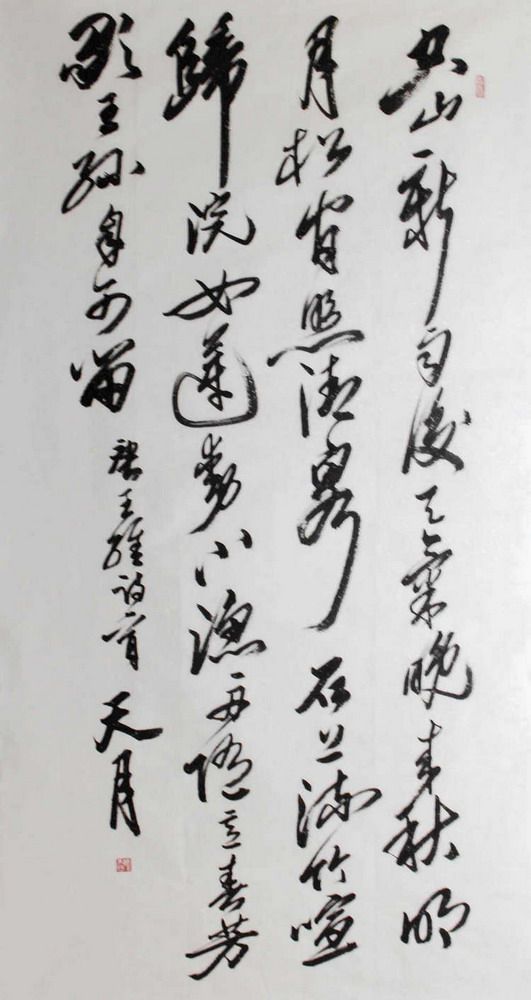 空山新雨後天氣晚來秋明
月松間照清泉石上流竹喧
歸浣女蓮動下漁舟隨意春芳
歇王孫自可留 唐王維詩一首 天月